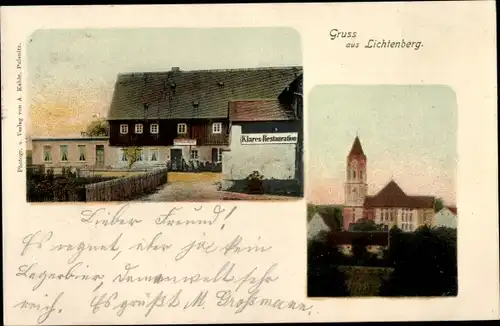 Gruss
aus Lichtenberg.
Photogr. u. Verlag von A. Kahle, Pulsnitz.
Klares Restauration
Lieber Freund!
Es regnet, über ja kein
Lagerbier,
reich. Es grüßt M. Großmann.